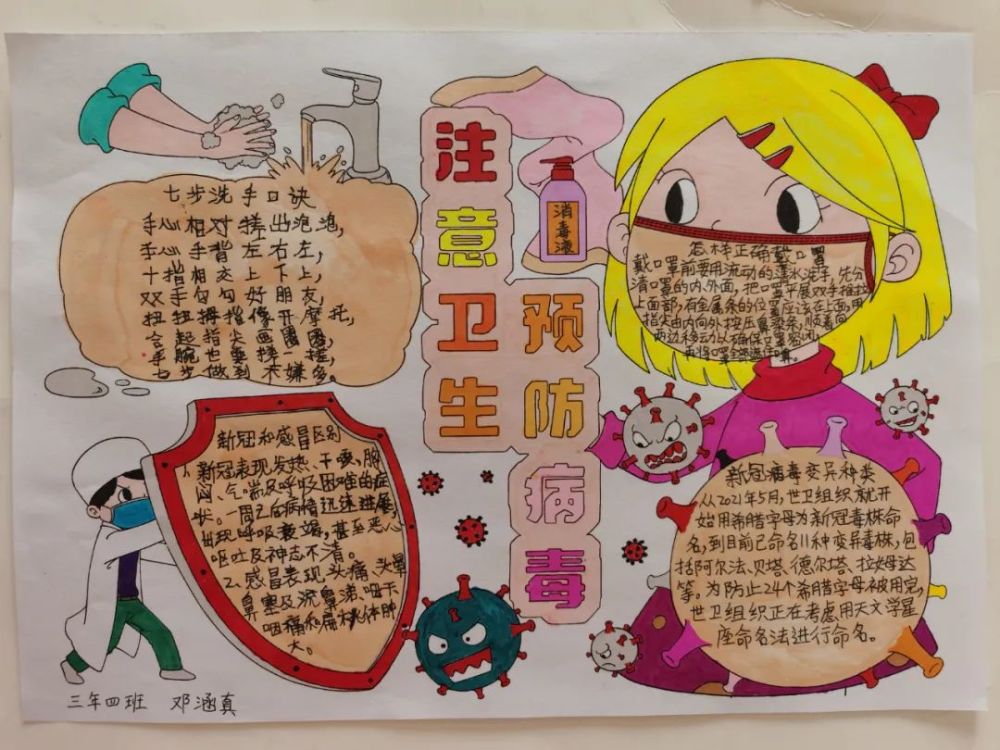 注意卫生
预防病毒
消毒液
七步洗手口诀
手心相对搓出泡泡,
手心手背左右左,
十指相交上下上,
双手勾勾好朋友,
扭扭拇指像开摩托,
合起指尖画圈圈,
手腕也要搓一搓,
七步做到不嫌多。
怎样正确戴口罩
戴口罩前要用流动的
清口罩的内外面,把口罩平展双手推拉
上面部,有金属条的位置应该在上面,用
指尖由内向外按压鼻梁条,顺着向
新冠和感冒区别
1、新冠表现发热、干咳、胸
闷、气喘及呼吸困难的症
状。一周之后病情迅速进展,
出现呼吸衰竭,甚至恶心
呕吐及神志不清。
2、感冒表现头痛、头晕
鼻塞及流鼻涕、咽干
咽痛和扁桃体肿
大。
新冠病毒变异种类
从2021年5月,世卫组织就开
始用希腊字母为新冠毒株命
名,到目前已命名11种变异毒株,包
括阿尔法、贝塔、德尔塔、拉姆达
等。为防止24个希腊字母被用完,
世卫组织正在考虑用天文学星
座命名法进行命名。
三年四班 邓涵真